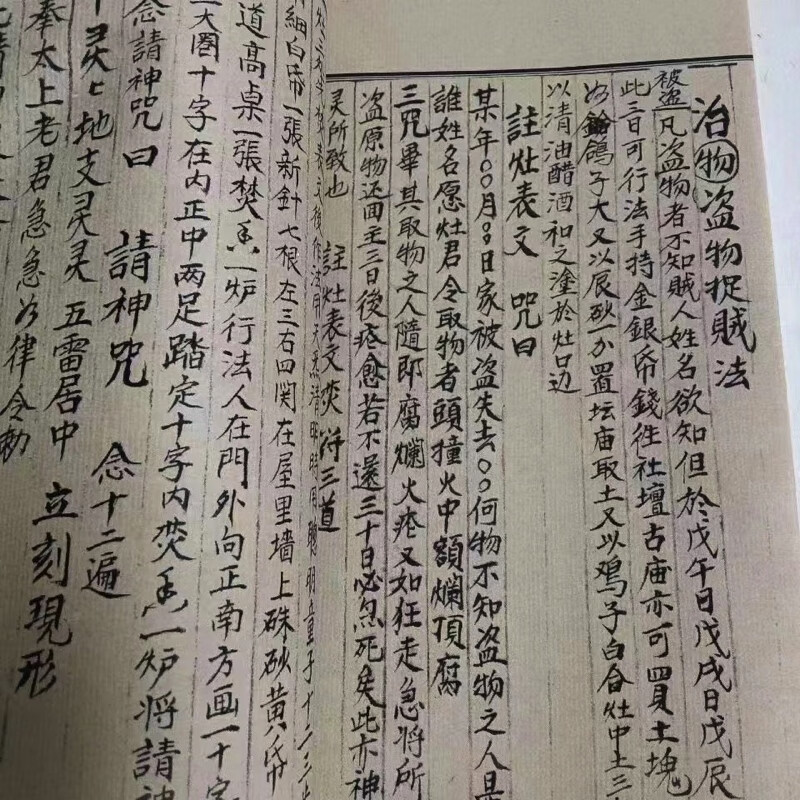 治物盗物捉賊法
被盗凡盗物者不知賊人姓名欲知但於戊午日戊戌日戊辰
此三日可行法手持金銀帋錢徃社壇古庙亦可買土塊
如鴿子大又以辰砂一分置坛庙取土又以鸡子白合灶中土三
以清油醋酒和之塗於灶口边
註灶表文 咒曰
某年〇〇月〇〇日家被盗失去〇〇何物不知盗物之人是
誰姓名愿灶君令取物者頭撞火中額爛頂腐
三咒畢其取物之人隨即腐爛火疮又如狂走急將所
盗原物还面主三日後疮愈若不還三十日必急死矣此亦神
灵所致也 註灶表文焚 符三道
表文後作法用天黑清眼時用聰明童子十二三
細白帋一張新針七根左三右四関在屋里墙上硃砂黄帋
道高桌一張焚香一炉行法人在門外向正南方画一十字
一大圈十字在内正中两足踏定十字内焚香一炉将請神
念請神咒曰 請神咒 念十二遍
灵灵地支灵灵 五雷居中 立刻現形
奉太上老君急急如律令勅